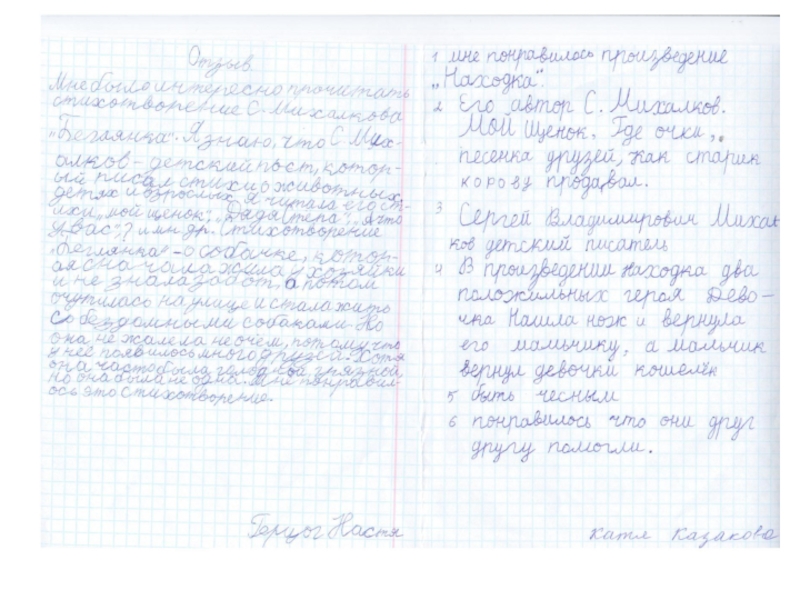 Отзыв.
Мне было интересно прочитать
стихотворение С. Михалкова
"Беглянка". Я знаю, что С Мих-
алков - детский поэт, котор-
ый писал стихи о животных,
детях и взрослых. Я читала его ст-
ихи, мой щенок", "Дядя Стёпа", "А что
у вас"? и мн др. Стихотворение
"Беглянка" - о собачке, котор-
ая сначала жила у хозяйки
и не знала забот, а потом
очутилась на улице и стала жить
с бездомными собаками. Но
она не жалела не о чём, потому что
у неё появилось много друзей. Хотя
она часто была голодной грязной,
но она была не одна. Мне понравил-
ось это стихотворение.
Настя
1 мне понравилось произведение
„Находка".
2 Его автор С. Михалков.
МОЙ Щенок. Где очки,
песенка друзей, как старик
корову продавал.
3 Сергей Владимирович Михал
ков детский писатель
4 В произведении находка два
положильных героя Дево-
чка Нашла нож и вернула
его мальчику, а мальчик
вернул девочки кошелёк
5 быть чесным
6 понравилось что они друг
другу помогли.
катя казакова